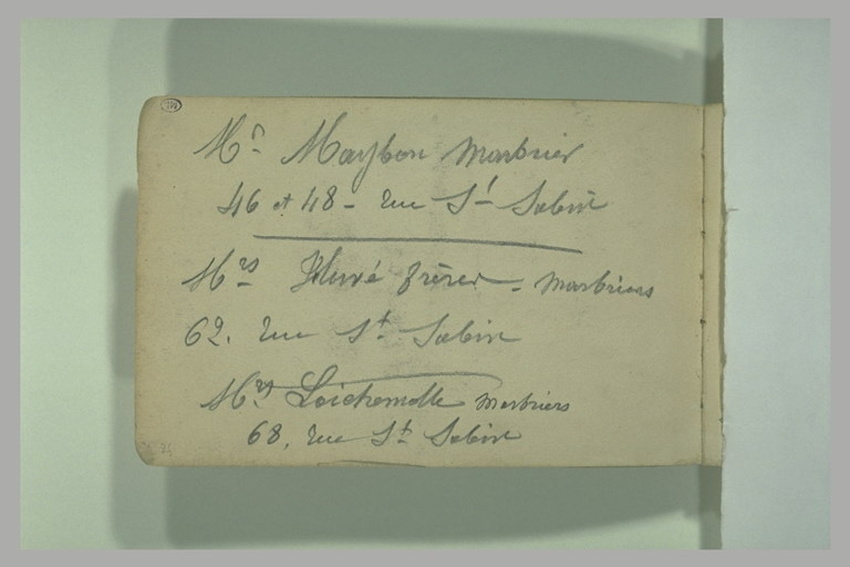 Mr Maybon marbrier
46 et 48 - rue St Sabin
Mrs frères - marbriers
62. rue St Sabin
Mrs marbriers
68, rue St Sabin